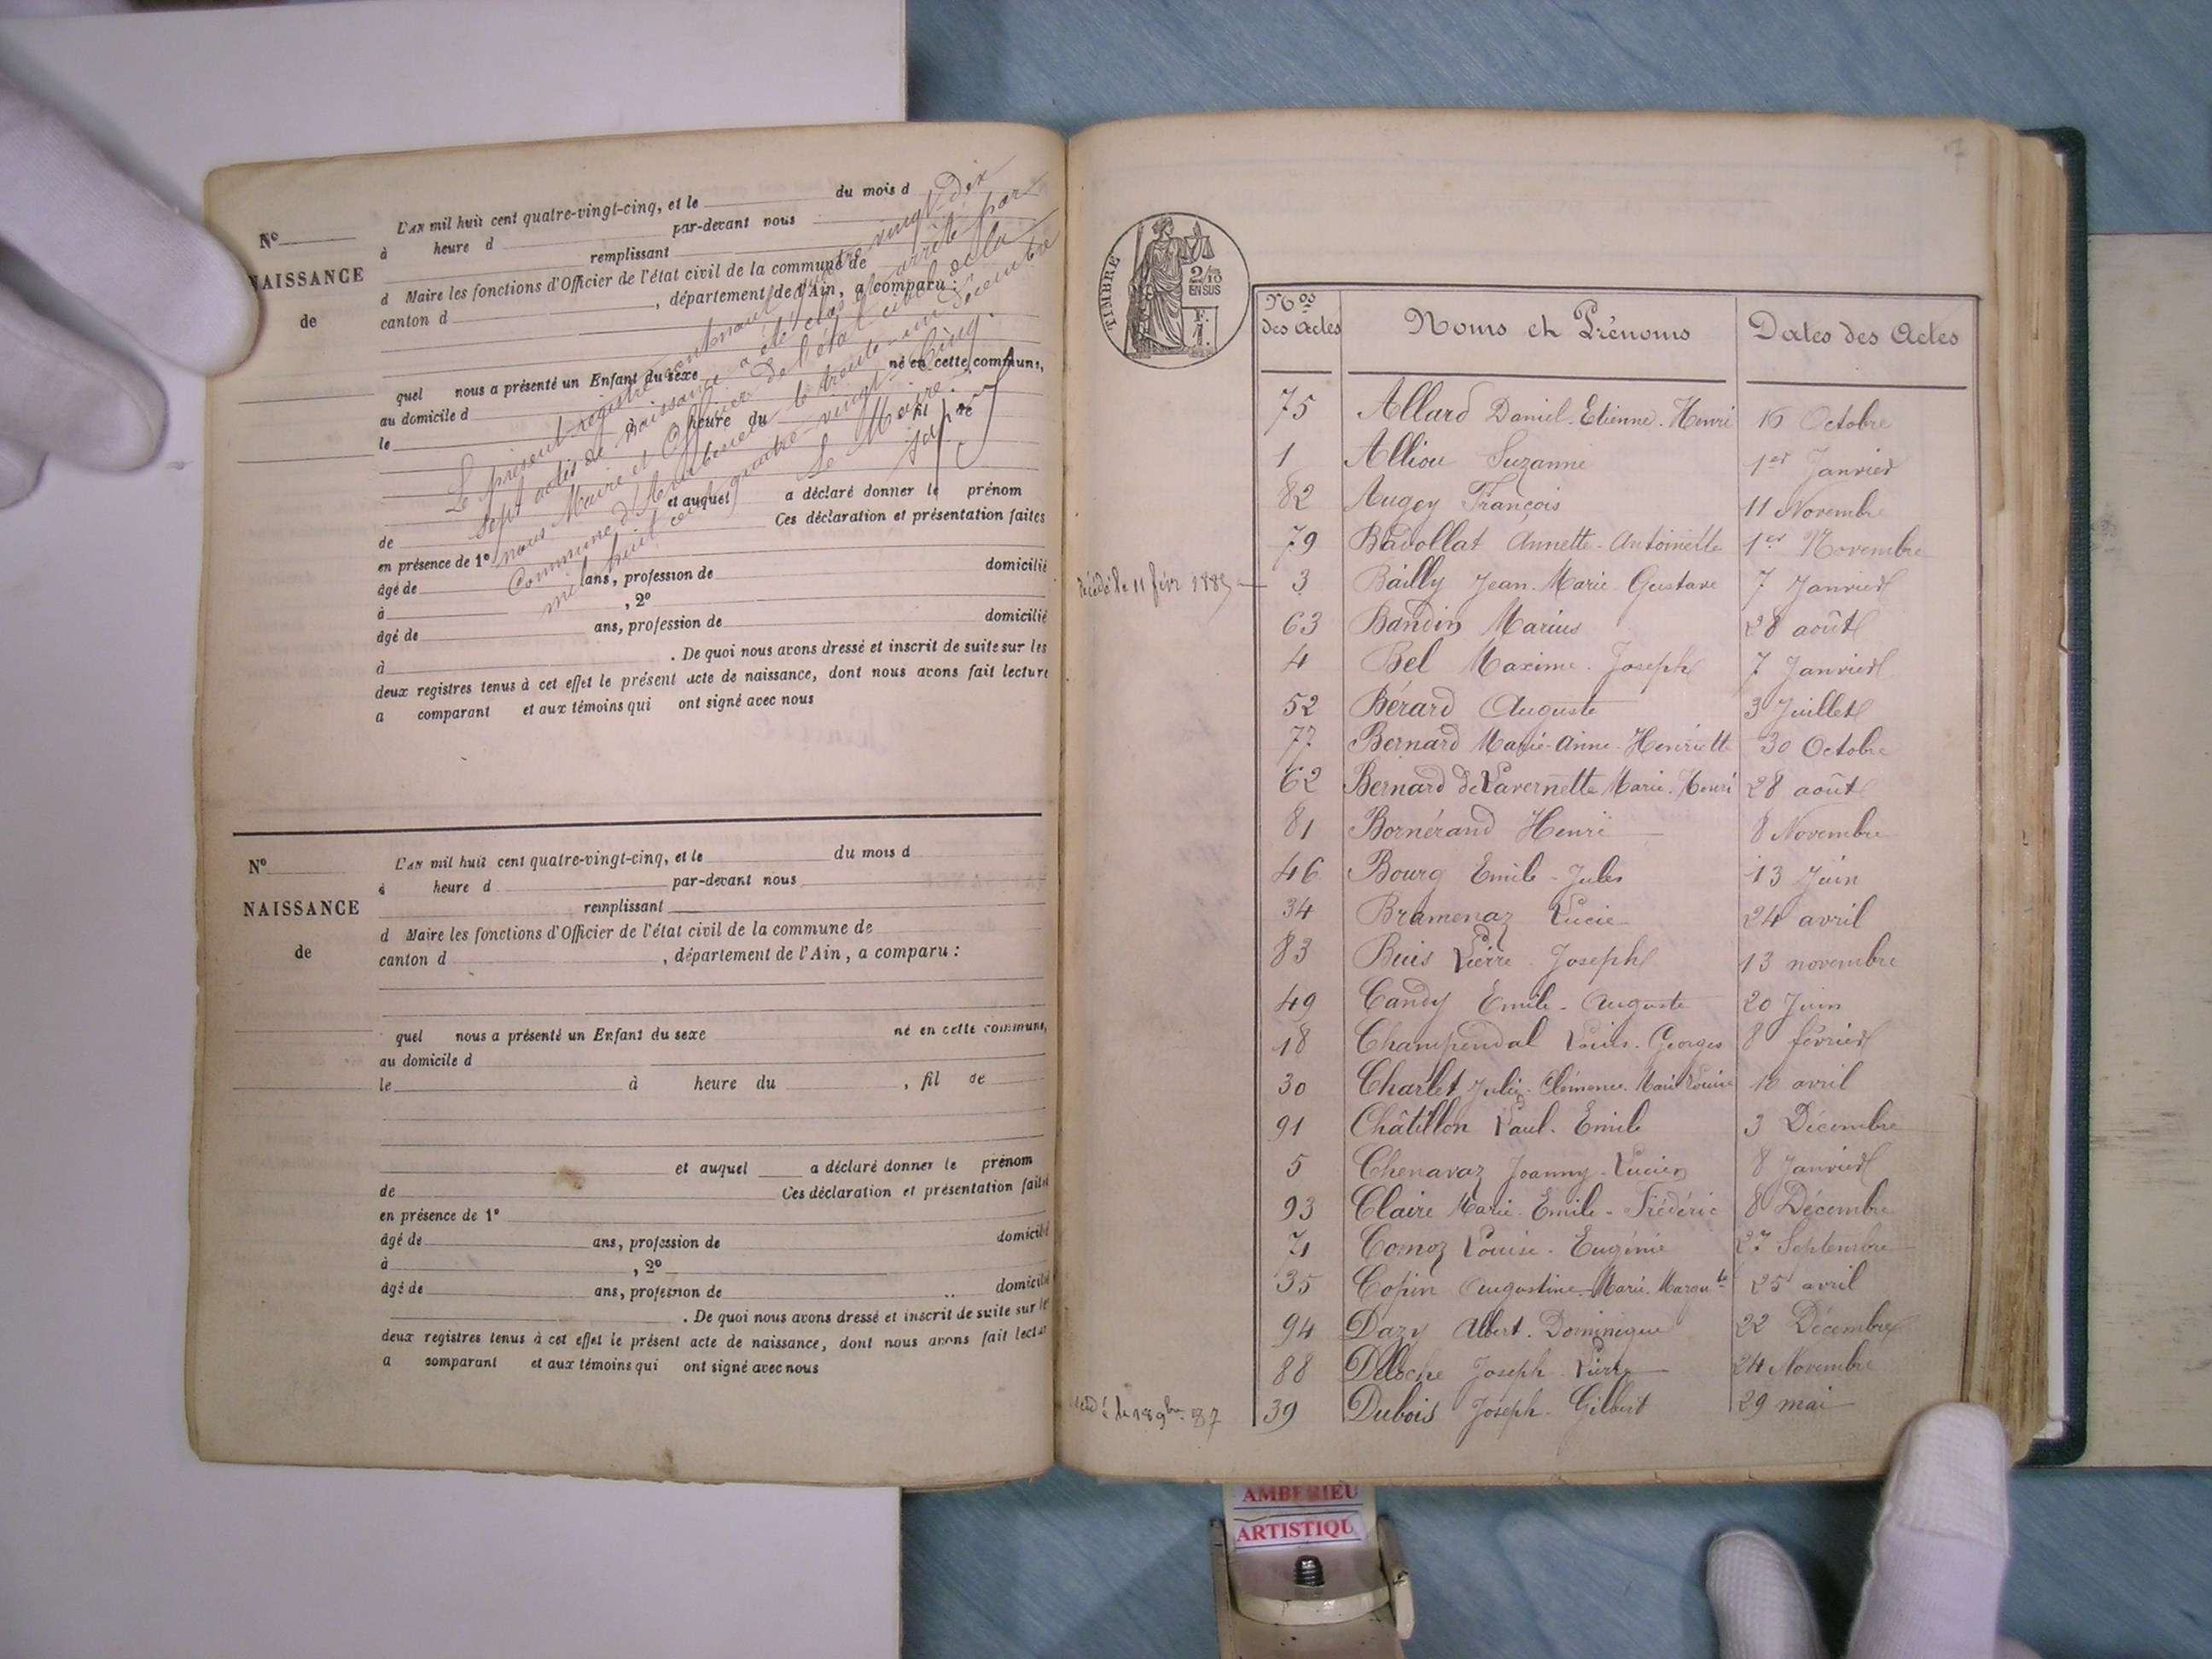 L'AN mil huit cent quatre-vingt-cinq, et le du mois d
N° à heure d par-devant nous
remplissant
NAISSANCE d Maire les fonctions d'Officier de l'état civil de la commune de
de canton d , département de l'Ain, a comparu :
quel nous a présenté un Enfant du sexe né en cette commune,
au domicile d
le à heure du , fil de
et auquel a déclaré donner le prénom
de Ces déclaration et présentation faites
en présence de 1°
âgé de ans, profession de domicilié
à , 2°
âgé de ans, profession de domicilié
à . De quoi nous avons dressé et inscrit de suite sur les
deux registres tenus à cet effet le présent acte de naissance, dont nous avons fait lecture
a comparant et aux témoins qui ont signé avec nous
Le présent registre contenant quatre vingt-dix
sept actes de naissance a été clos et arrêté par
nous Maire et Officier de l'état civil de la
Commune d' le trente-un Décembre
mil huit cent quatre-vingt-Cinq.
Le Maire.
N° L'AN mil huit cent quatre-vingt-cinq, et le du mois d
à heure d par-devant nous
NAISSANCE remplissant
d Maire les fonctions d'Officier de l'état civil de la commune de
de canton d , département de l'Ain, a comparu :
quel nous a présenté un Enfant du sexe né en cette commune,
au domicile d
le à heure du , fil de
et auquel a déclaré donner le prénom
de Ces déclaration et présentation faites
en présence de 1°
âgé de ans, profession de domicilié
à , 2°
âgé de ans, profession de domicilié
. De quoi nous avons dressé et inscrit de suite sur le
deux registres tenus à cet effet le présent acte de naissance, dont nous avons fait lectur
a comparant et aux témoins qui ont signé avec nous
TIMBRE
2/10
EN SUS
F.
1.
Nos des Actes Noms et Prénoms Dates des Actes
75 Allard Daniel-Etienne-Henri 16 Octobre
1 Alliou Suzanne 1er Janvier
82 Augey François 11 Novembre
79 Bavollat Annette-Antoinette 1er Novembre
décédé le 11 févr 1885 3 Bailly Jean-Marie-Gustave 7 Janvier
63 Bandin Marius 28 août
4 Bel Maxime-Joseph 7 Janvier
52 Bérard Auguste 3 Juillet
77 Bernard Marie-Anne-Henriette 30 Octobre
62 Bernard de Lavernette Marie-Henri 28 août
81 Bornérand Henri 8 Novembre
46 Bourg Emile-Jules 13 Juin
34 Bramenaz Lucie 24 avril
83 Buis Pierre-Joseph 13 novembre
49 Candy Emile-Auguste 20 Juin
18 Champendal Louis-Georges 8 février
30 Charlet Julie-Clémence-Marie Louise 10 avril
91 Châtillon Paul-Emile 3 Décembre
5 Chenavaz Joanny-Lucien 8 Janvier
93 Claire Marie-Emile-Frédéric 8 Décembre
71 Cornoz Louise-Eugénie 27 Septembre
35 Copin Augustine-Marie-Margute 25 avril
94 Dazy Albert-Dominique 22 Décembre
88 Deloche Joseph-Pierre 24 Novembre
39 Dubois Joseph-Gilbert 29 mai
AMBERIEU
ARTISTIQU